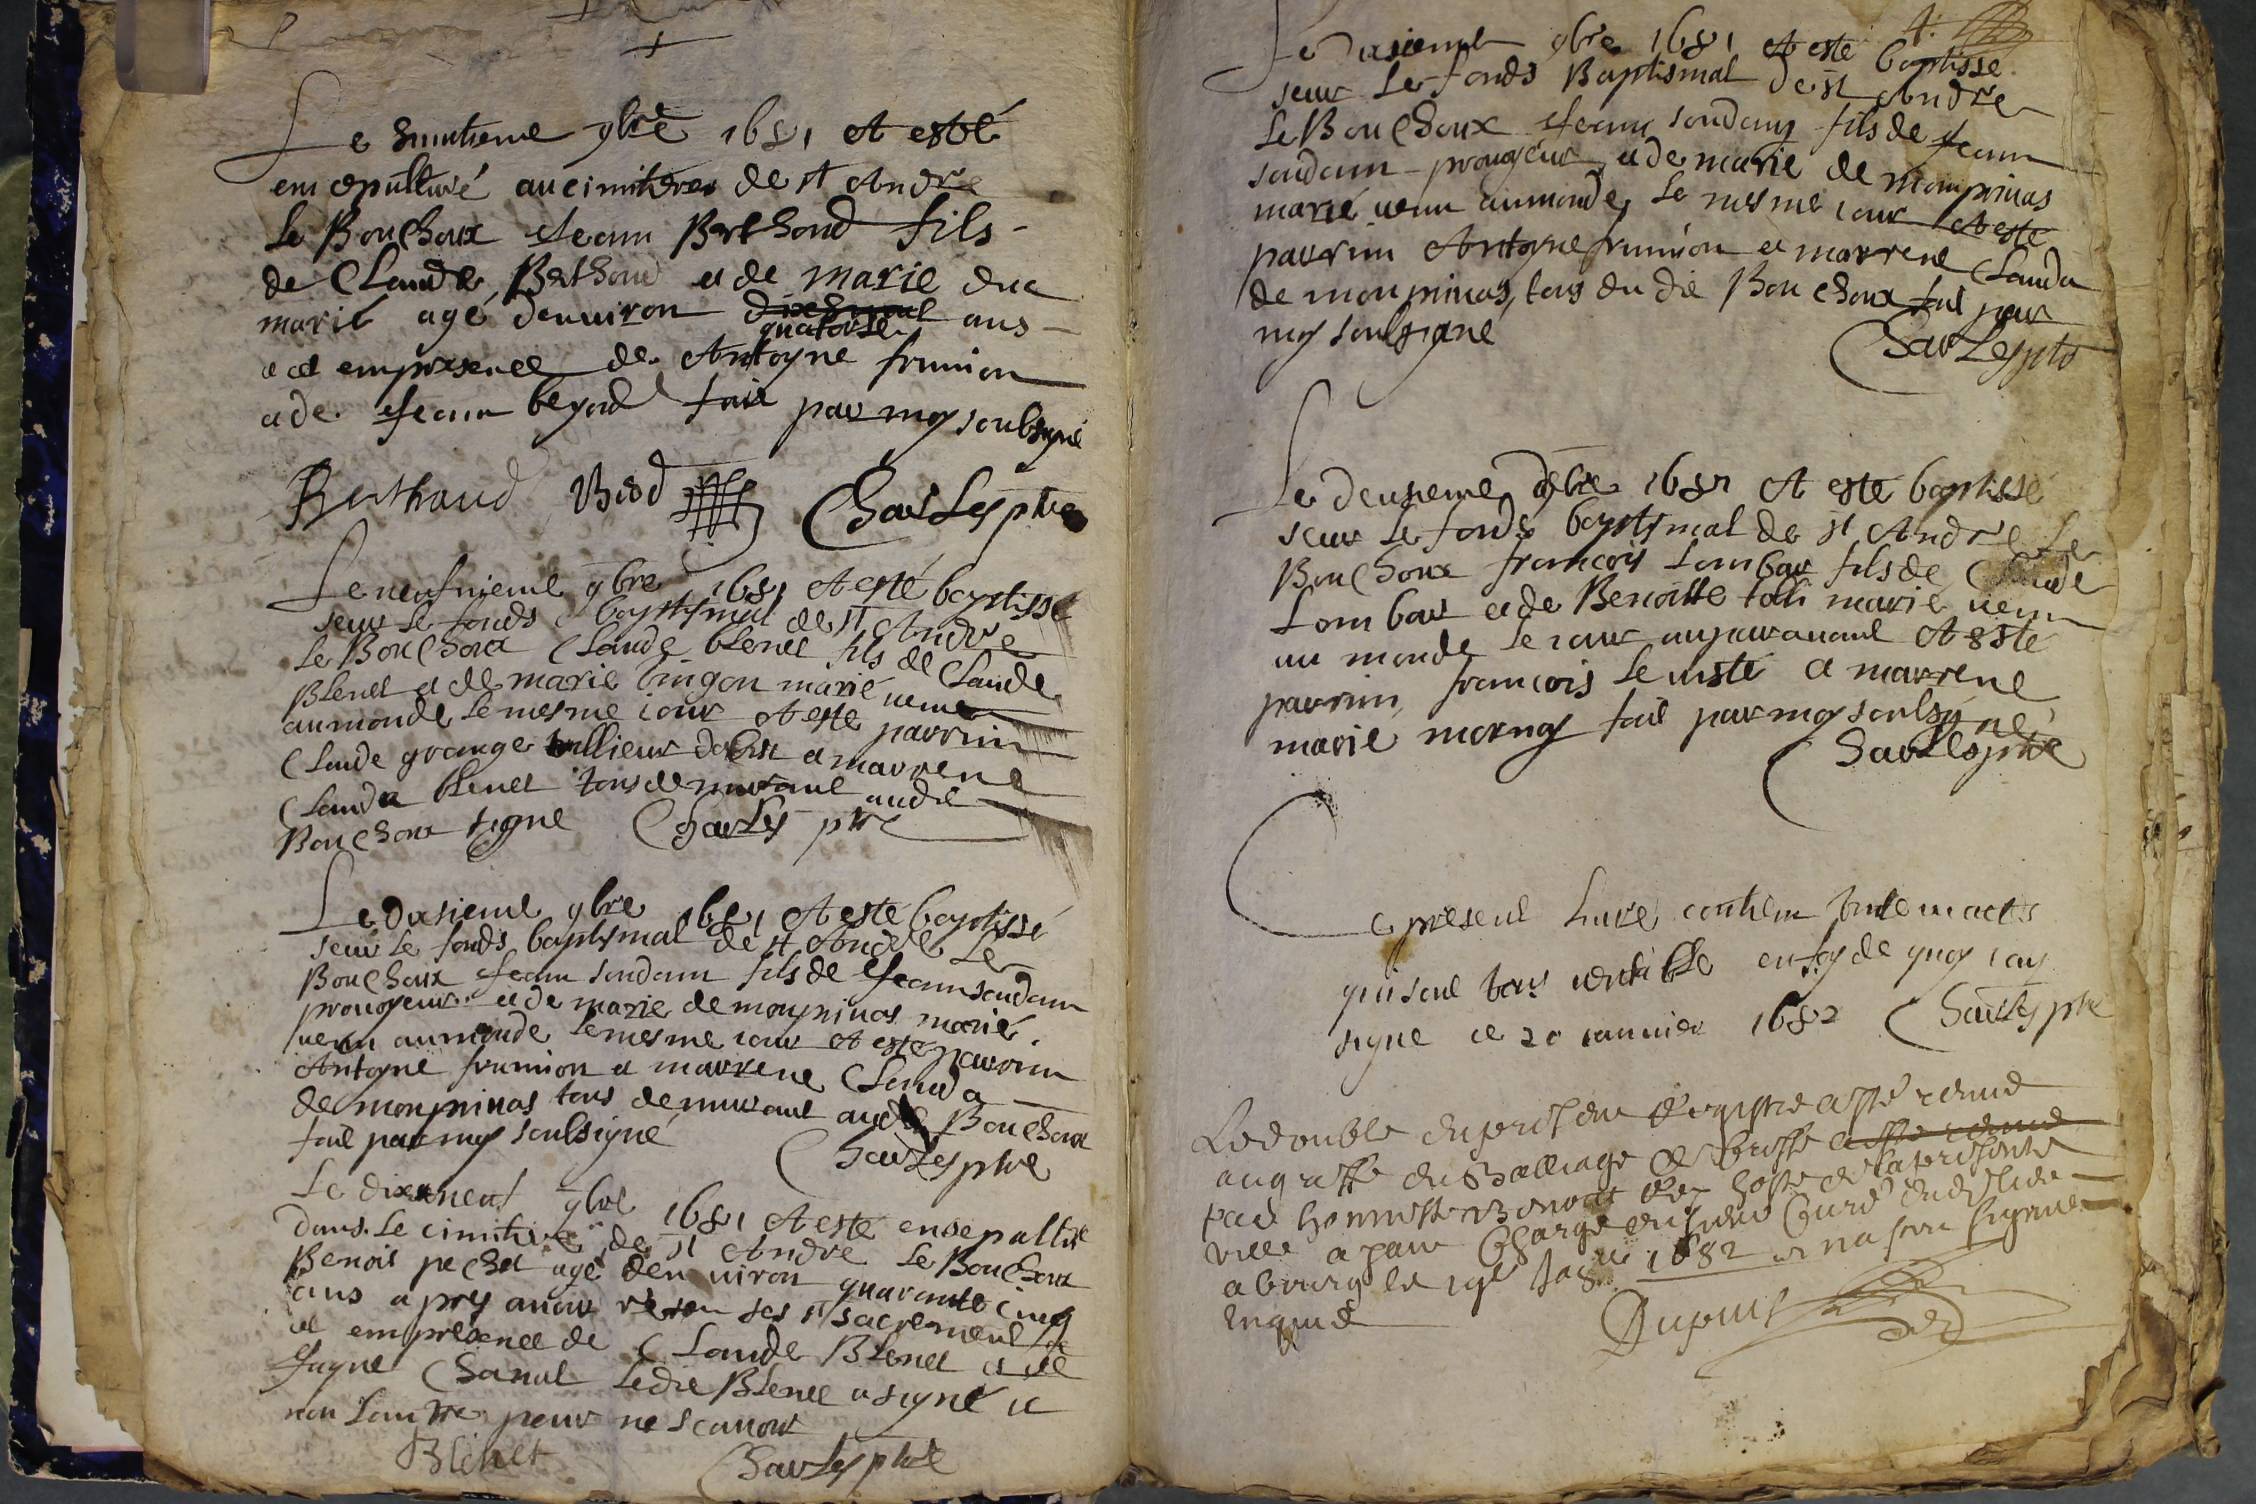 Le huutieme 9bre 1681 et esté
encepulturé au cimitere de st Andre
le Bouchoux Jean Berthoud fils
de Claude Berthoud et de marie duc
marié agé denuiron dixhuict ans
quatorse
et ce empresence de Antoyne frunion
et de Jean beyod fait par moy soubsigné
Berthaud Biod Charles ptre
Le neufuieme 9bre 1681 et esté baptissé
seur le fonds baptismal de st Andre
le Bouchoux Claude blenet fils de Claude
Blenet et de marie bingon marié uenu
au monde le mesme iour et esté parrin
Claude grange et marrene
Clauda blenet tous demurant audit
Bouchoux signe Charles ptre
Le dixieme 9bre 1681 et esté baptissé
seur le fonds baptismal de st Andre Le
Bouchoux Jean soudam fils de Jean soudam
prouoyeur et de marie de monpinas marié
uenu au monde le mesme iour et esté parrin
Antoyne frunion et marrene Clauda
de monpinas tous demurant audit Bouchoux
fait par moy soulsigné
Charles ptre
Le dixeneuf 9bre 1681 et esté ensepulturé
dans le cimitire de st Andre le Bouchoux
Benois pechet agé denuiron quarante cinq
ans apres auoir reseu ses st sacrement ce
et empresence de Claude Blenet et de
Chanut ledit Blenet a signé et
non lautre pour ne scauoir
Blenet Charles ptre
4.
Le dixieme 9bre 1681 et esté baptisse
seur le fonds Baptismal de st Andre
le Bouchoux Jean soudam fils de Jean
soudam prouoyeur et de marie de monpinas
marié uenu au monde le mesme iour et esté
parrin Antoyne frunion et marrene Clauda
de monpinas tous du dit Bouchoux fait par
moy soulsigne
Charles ptre
Le deusieme 1681 et esté baptissé
seur le fonds baptismal de st Andre Le
Bouchoux francois Lombar fils de Claude
Lombar et de Benoitte marié uenu
au monde le iour auparauant et esté
parrin francois et marrene
marie morney fait par moy soulsigné
Charles ptre
Ce present liure contien actes
qui sont tous ueritable en foy de quoy iay
signe ce 20 iannier 1682 Charles ptre
Le double du present Registre a esté remis
au greffe du Balliage de Bresse a esté remis
par honneste Benoist hoste de la presente
ville ayant charge du sieur Curé dudit lieu
a bourg le 1682 et na sceu signer
enquis
Dupuis